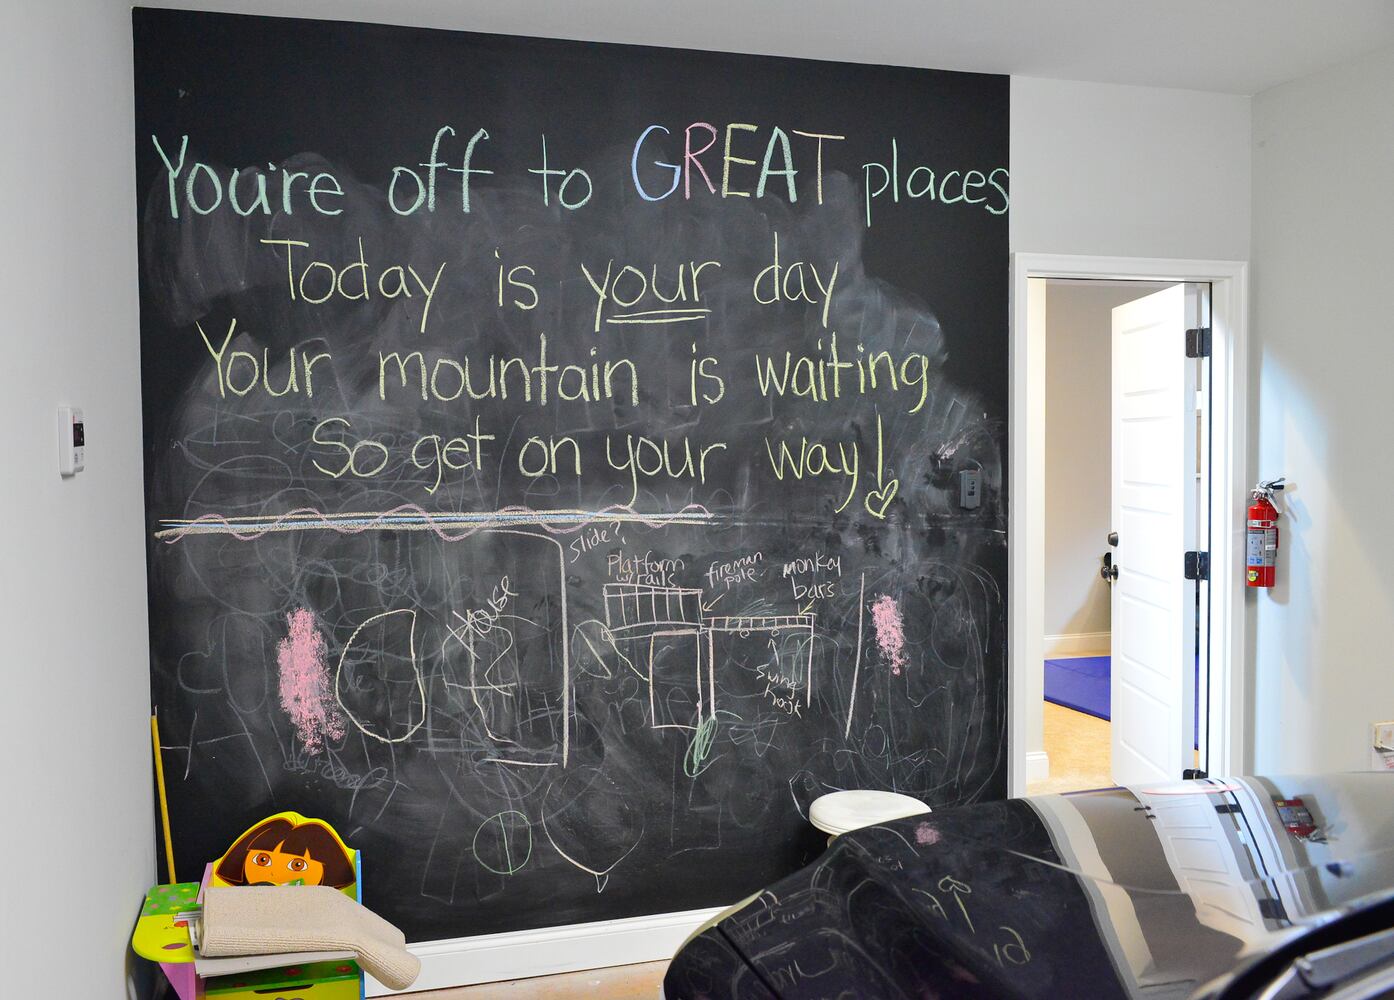 You're off to GREAT places
Today is your day
Your mountain is waiting
So get on your way!
Slide?
Platform
w/ rails
fireman
pole
monkey
bars
House
Swing